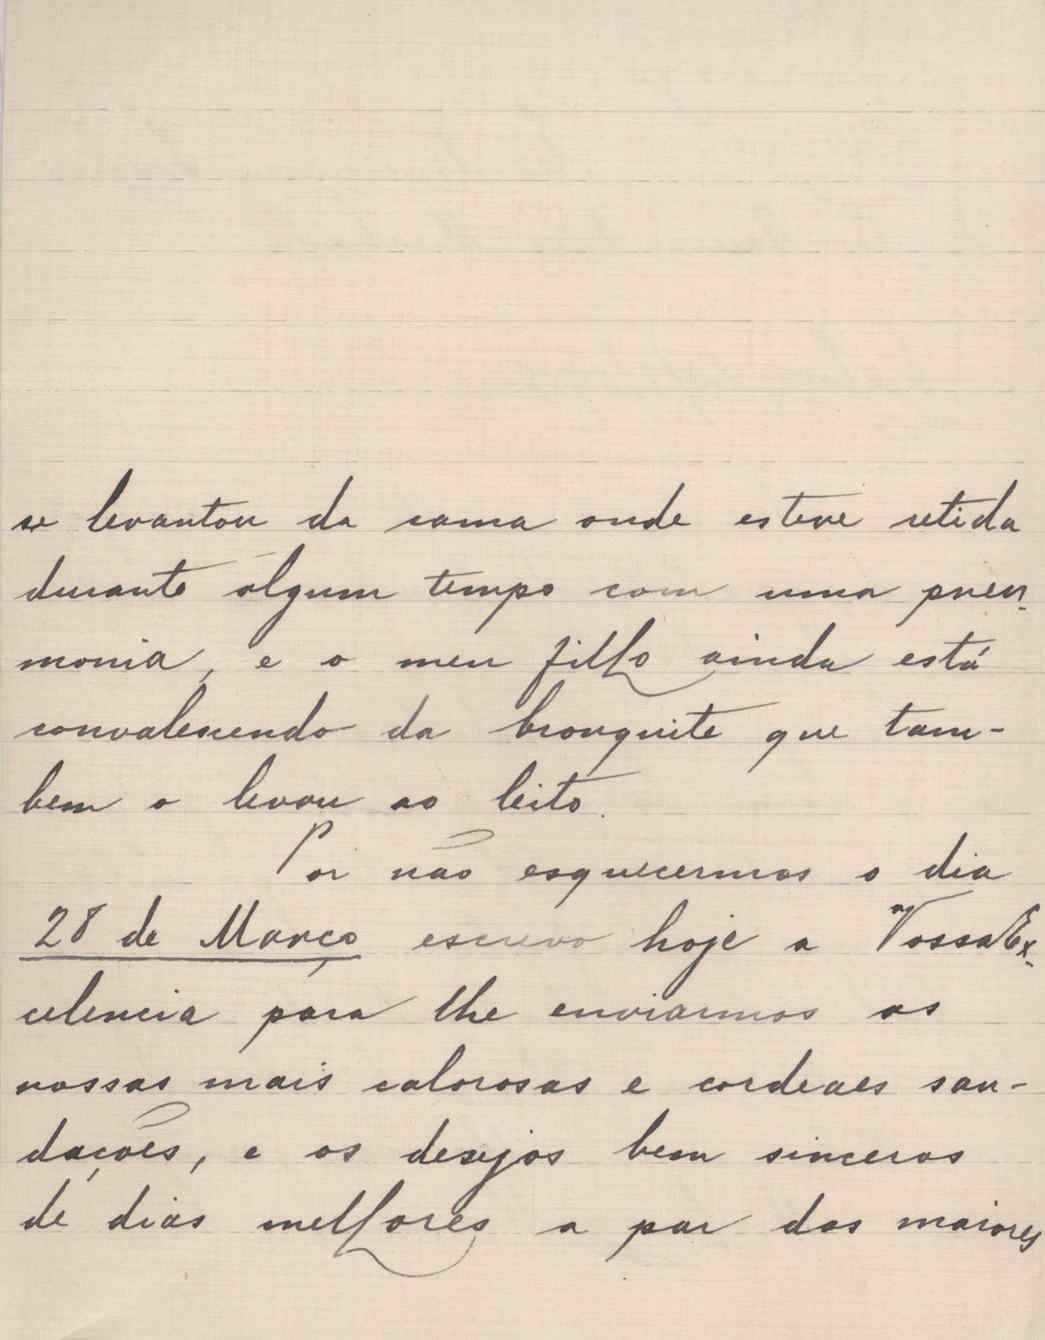 se levantou da cama onde esteve retida
durante algum tempo com uma pneu-
monia, e o meu filho ainda está
convalescendo da bronquite que tam-
bem o levou ao leito.
Por não esquecermos o dia
28 de Março escrevo hoje a Vossa Ex-
celencia para lhe enviarmos as
nossas mais calorosas e cordeaes sau-
dações, e os desejos bem sinceros
de dias melhores a par das maiores